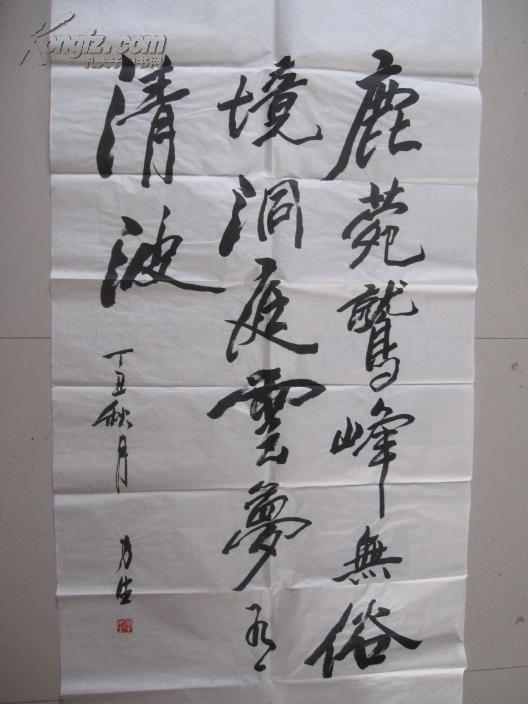 鹿菀鷲峰無俗
境洞庭雲夢有
清波
丁丑秋月
Kongfz.com
孔夫子旧书网